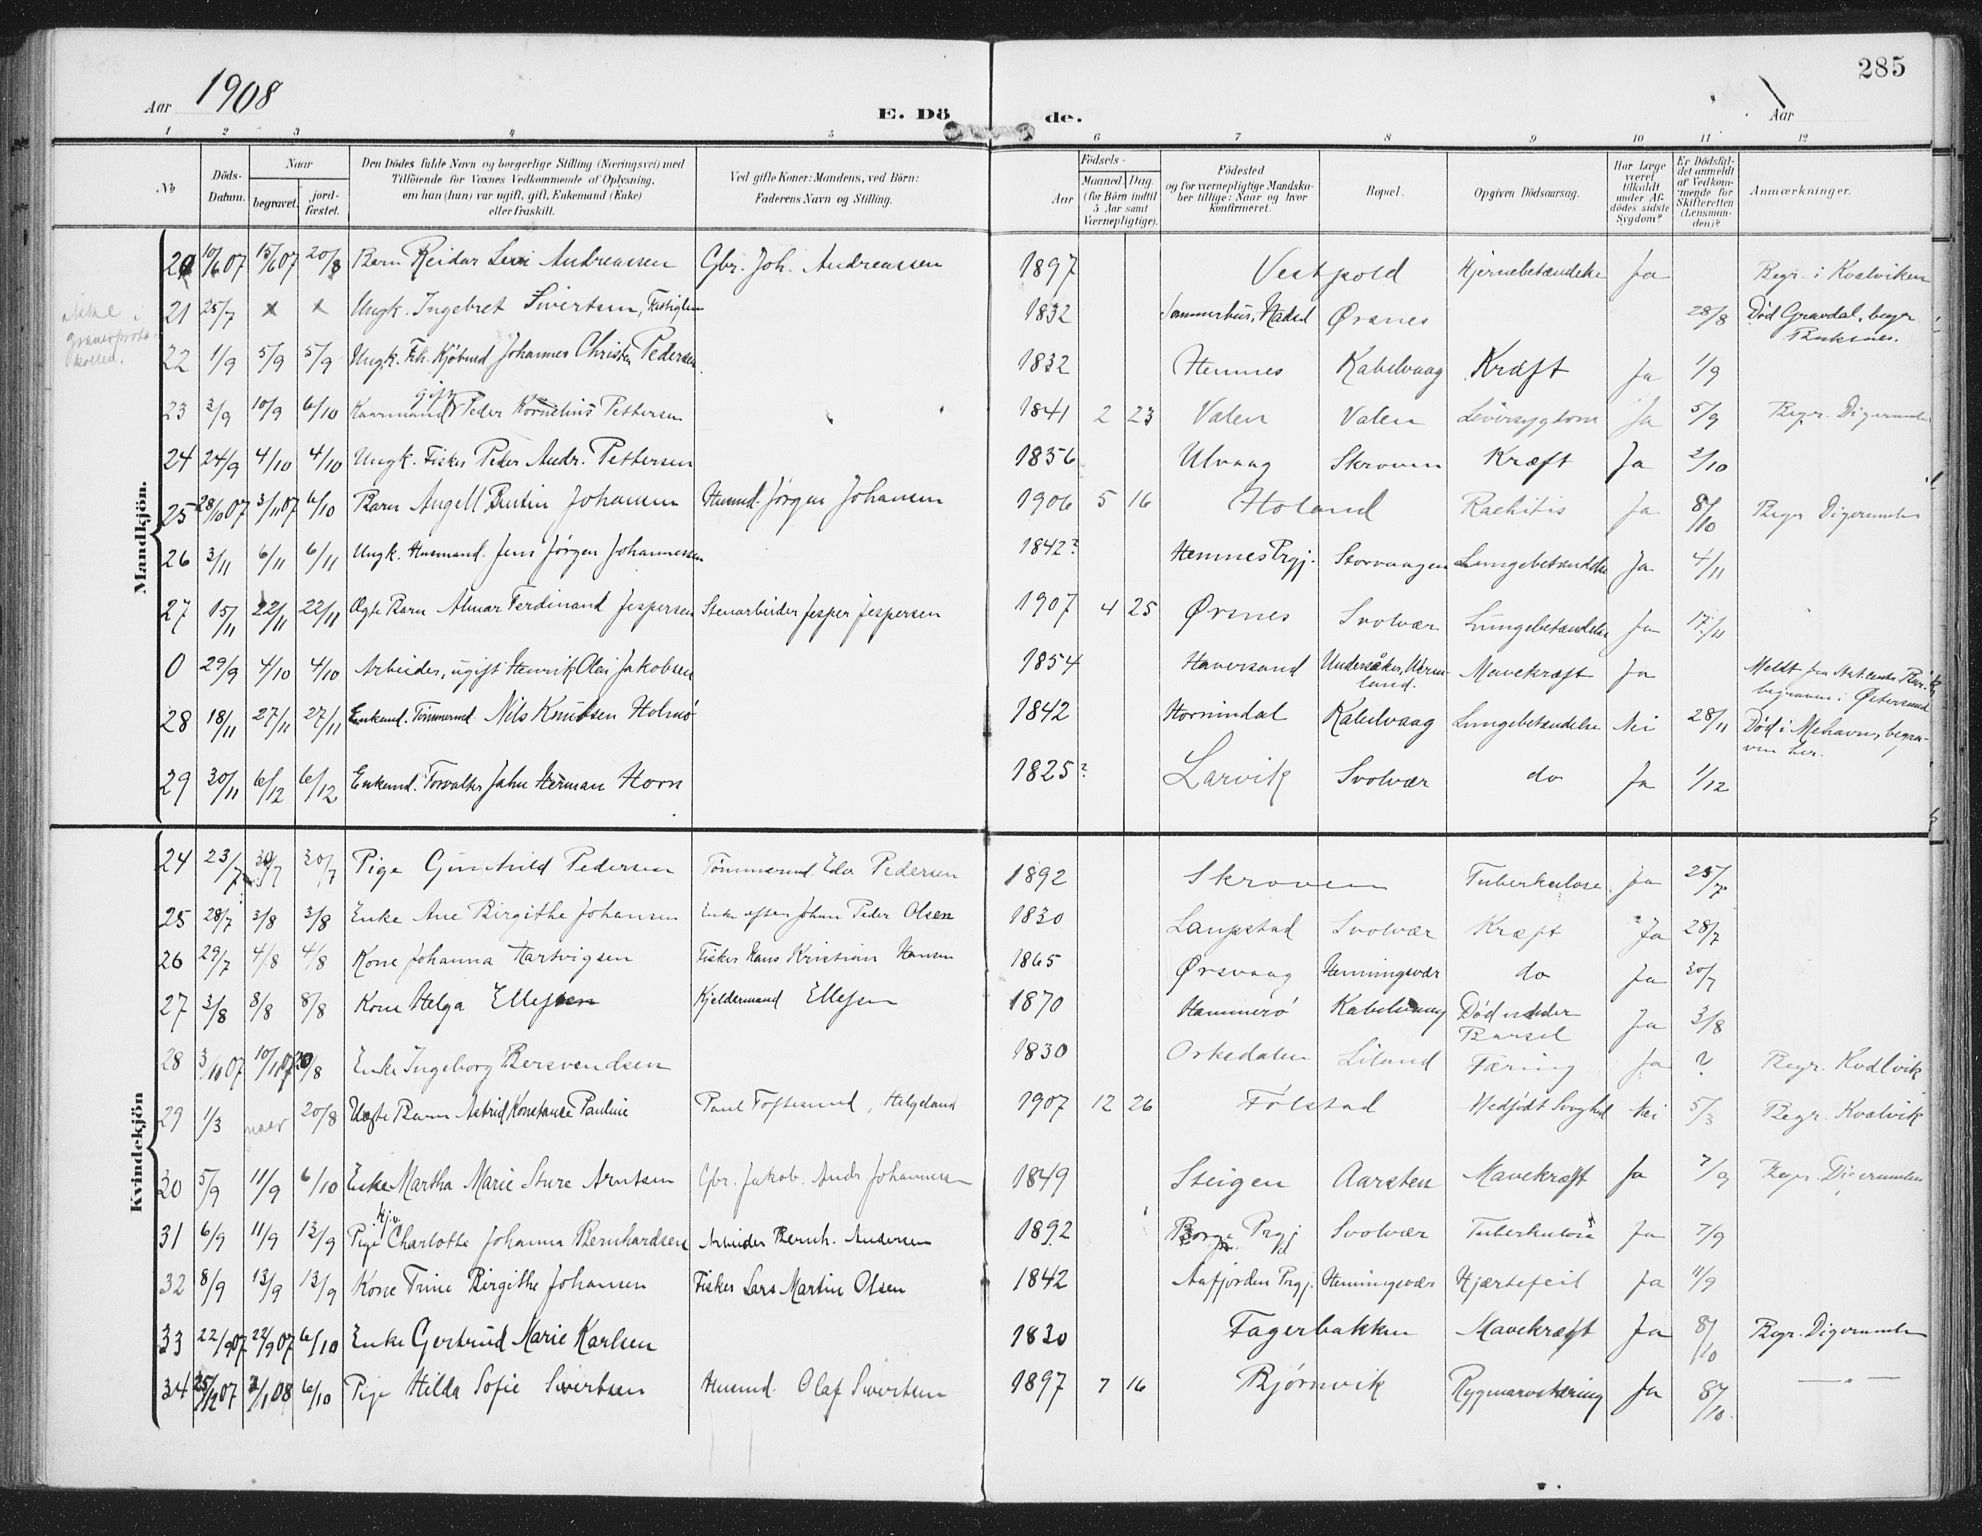 285
Aar 1908
E. Döde.
Aar
1 2 3 4 5 6 7 8 9 10 11 12
No
Döds-Datum.
Naar
begravet.
jordfæstet.
Den Dödes fulde Navn og borgerlige Stilling (Næringsvei) med
Tilföiende for Voxnes Vedkommende af Oplysning,
om han (hun) var ugift, gift, Enkemand (Enke)
eller fraskilt.
Ved gifte Koner: Mandens, ved Börn:
Faderens Navn og Stilling.
Födsels-
Aar
Maaned Dag.
(for Börn indtil
5 Aar samt
Værnepligtige).
Födested
og for værnepligtige Mandska-
ber tillige: Naar og hvor
konfirmeret.
Bopæl.
Opgiven Dödsaarsag.
Har Læge
været
tilkaldt
under Af-
dödes sidste
Sygdom?
Er Dödsfal-
det anmeldt
af Vedkom-
mende for
Skifteretten
(Lensman-
den)?
Anmærkninger.
Mandkjön.
20 10/6 07 15/6 07 20/8 Barn Reidar Levi Andreassen Gbr. Joh. Andreassen 1897 Vestpold Hjernebetændelse Ja Begr. i Kvalviken
21 25/7 x x Ungk. Ingebret Sivertsen, Fattiglem 1832 Sommerhus, Hadsel Ørsnes 28/8 Død Gravdal, begr. Buksnes.
22 1/9 5/9 5/9 Ungk. Fh. Kjöbmd Johannes Christen Pedersen. 1832 Hemnes Kabelvaag Kræft Ja 1/9
23 3/9 10/9 6/10 Kaarmand gift Peder Kornelius Pettersen 1841 2 23 Valen Valen Leversygdom Ja 5/9 Begr. Digermulen
24 24/9 4/10 4/10 Ungk. Fisker Peder Andr. Pettersen 1856 Ulvaag Skroven Kræft Ja 2/10
25 28/10 07 3/11 07 6/10 Barn Angell Johansen Husmd. Jørgen Johansen 1906 5 16 Holand Rachitis Ja 8/10 Begr Digermulen
26 3/11 6/11 6/11 Ungk. Husmand. Jens Jørgen Johannessen 1842? Hemnes Prgj. Storvaagen Lungebetændelse Ja 4/11
27 15/11 22/11 22/11 Ægte Barn Almar Ferdinand Jespersen Stenarbeider Jesper Jespersen 1907 4 25 Ørsnes Svolvær Lungebetændelse Ja 17/11
0 29/9 4/10 4/10 Arbeider, ugift Henrik Olai Jakobsen 1854 Haversand Undersåker, Mavekræft Ja Meldt fra begraven i Østersund
28 18/11 27/11 27/11 Enkemd. Tømmermd. Nils Knudsen Holmø 1842 Hornindal Kabelvaag Lungebetændelse Nei 28/11 Død i Mehavn, begra-
ven her.
29 30/11 6/12 6/12 Enkemd. Forvalter John Herman Horn 1825? Larvik Svolvær do Ja 1/12
Kvindekjön
24 23/7 30/7 30/7 Pige Gunhild Pedersen Tømmermd. Edv Pedersen 1892 Skroven Tuberkulose Ja 25/7
25 28/7 3/8 3/8 Enke Ane Birgithe Johansen Enke efter Johan Peder Olsen 1830 Laupstad Svolvær Kræft Ja 28/7
26 29/7 4/8 4/8 Kone Johanna Hartvigsen Fisker Hans Kristian Hansen 1865 Ørsvaag Henningsvær do Ja 30/7
27 3/8 8/8 8/8 Kone Helga Ellefsen Kjeldermand Ellefsen 1870 Hammerø Kabelvaag Død under
Barsel Ja 3/8
28 3/11 07 10/11 07 20/8 Enke Ingeborg Bersvendsen 1830 Orkedalen Liland Tæring Ja ? Begr. Kvalvik
29 1/3 20/8 Uægte Barn Astrid Konstanse Pauline Paul Toftesund, Helgeland 1907 12 26 Følstad Medfødt Svaghed Nei 5/3 Begr. Kvalvik
30 5/9 11/9 6/10 Enke Martha Marie Sture Arntsen Gbr. Jakob. Andr Johannesen 1849 Steigen Aarsten Mavekræft Ja 7/9 Begr. Digermulen
31 6/9 11/9 13/9 Pige Charlotte Johanna Bernhardsen Arbeider Bernh. Andersen 1892 Borge Prgj Svolvær Tuberkulose Ja 7/9
32 8/9 13/9 13/9 Kone Trine Birgithe Johansen Fisker Lars Martin Olsen 1842 Aafjorden Prgj. Henningsvær Hjærtefeil Ja 11/9
33 22/9 07 22/9 07 6/10 Enke Gertrud Marie Karlsen 1830 Fagerbakken Mavekræft Ja 8/10 Begr. Digermulen
34 25/12 07 3/1 08 6/10 Pige Hilda Sofie Sivertsen Husmd. Olaf Sivertsen 1897 7 16 Bjørnvik Rygmarvstæring Ja 8/10 — " —